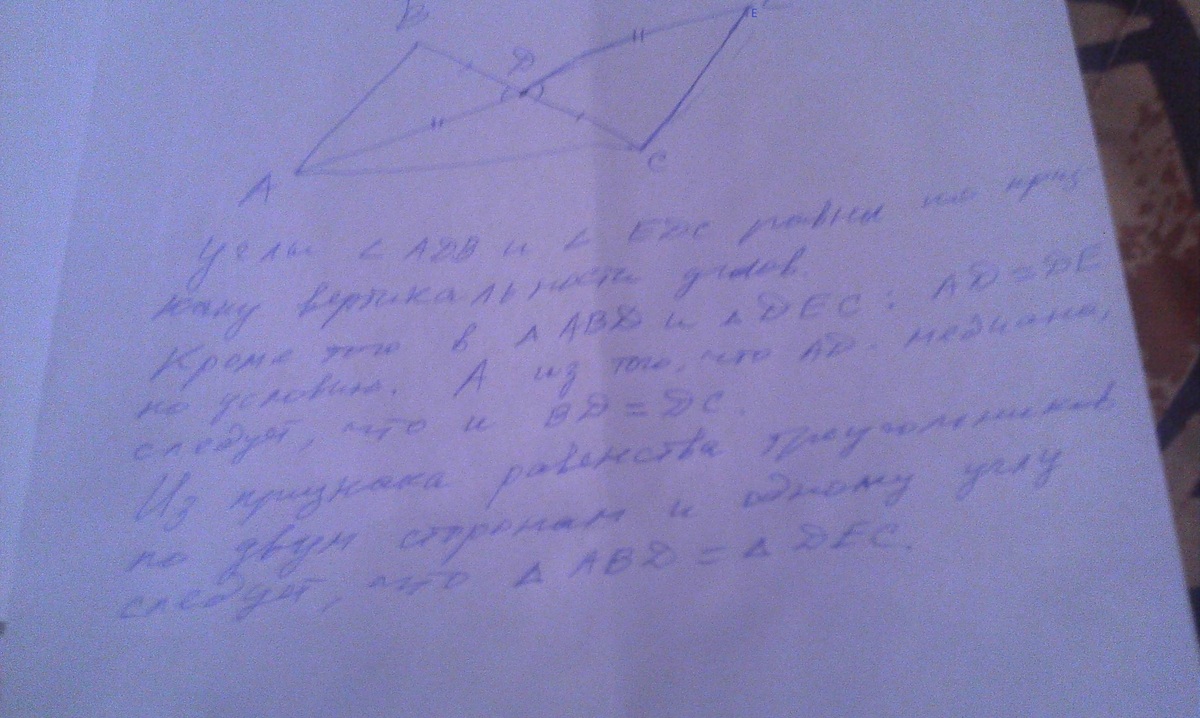 B
D
E
A
C
Углы ∠ ADB и ∠ EDC равны по приз-
наку вертикальности углов.
Кроме того в △ ABD и △ DEC: AD = DE
по условию. А из того, что AD - медиана,
следует, что и BD = DC.
Из признака равенства треугольников
по двум сторонам и одному углу
следует, что △ ABD = △ DEC.